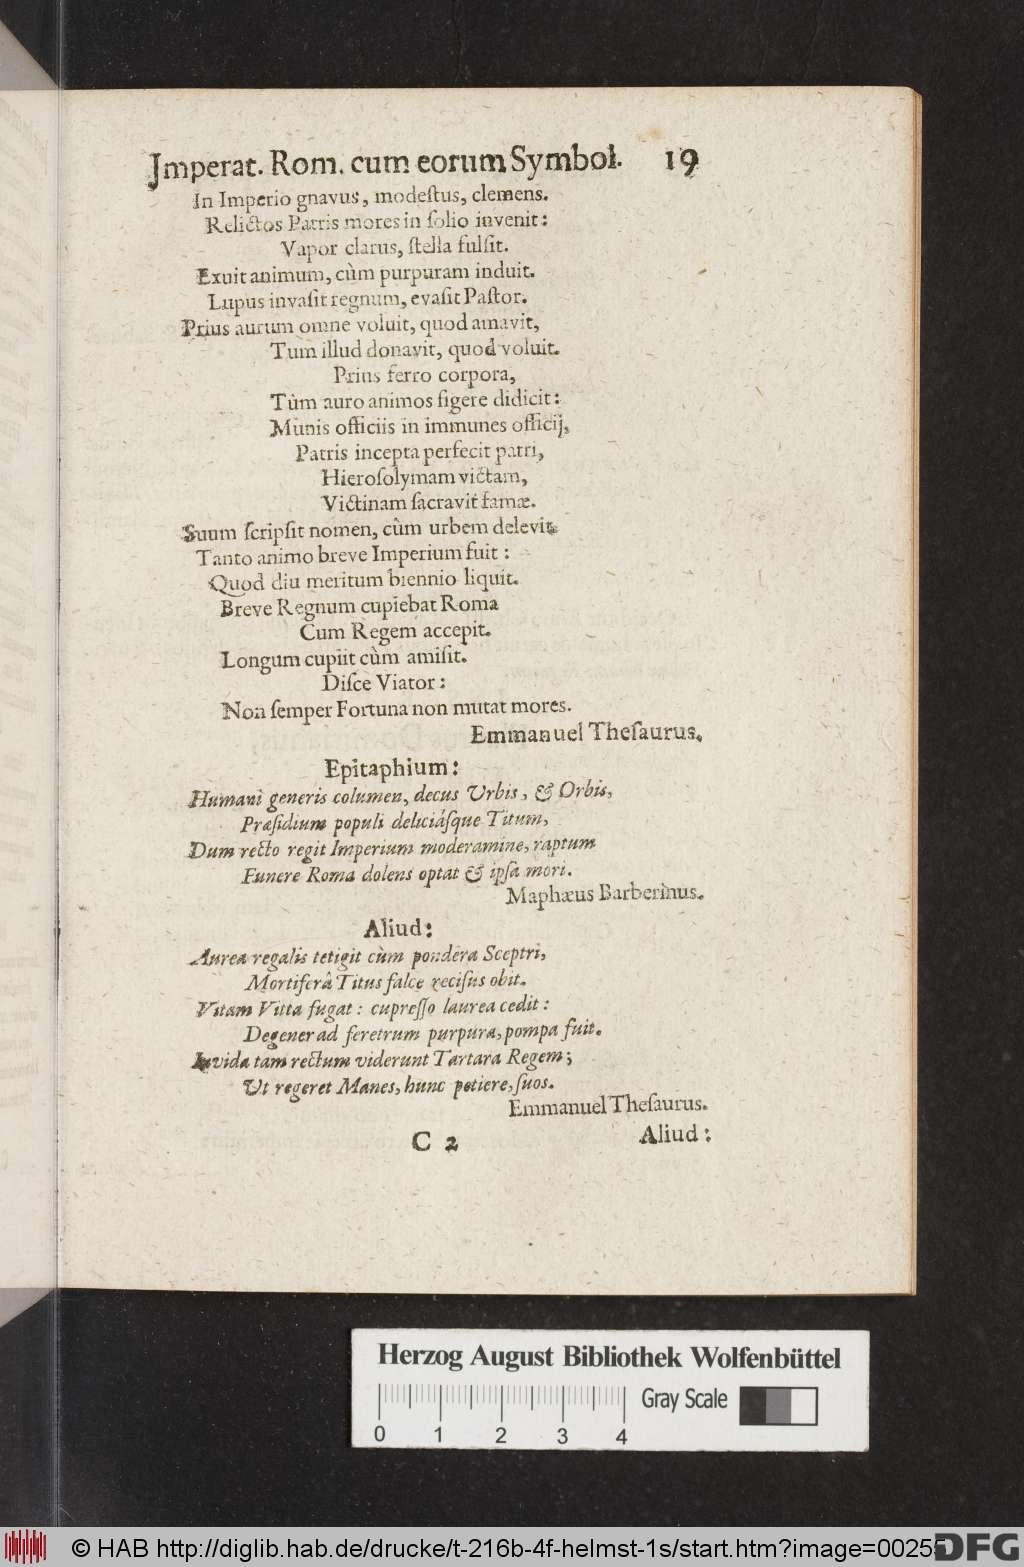 Jmperat. Rom. cum eorum Symbol. 19
In Imperio gnavus, modeſtus, clemens.
Relictos Patris mores in ſolio invenit:
Vapor clarus, ſtella fulſit.
Exuit animum, cùm purpuram induit.
Lupus invaſit regnum, evaſit Paſtor.
Prius aurum omne voluit, quod amavit,
Tum illud donavit, quod voluit.
Prius ferro corpora,
Tùm auro animos figere didicit:
Munis officiis in immunes officij,
Patris incepta perfecit patri,
Hieroſolymam victam,
Victinam ſacravit famæ.
Suum ſcripſit nomen, cùm urbem delevit.
Tanto animo breve Imperium fuit:
Quod diu meritum biennio liquit.
Breve Regnum cupiebat Roma
Cum Regem accepit.
Longum cupiit cùm amiſit.
Diſce Viator:
Non ſemper Fortuna non mutat mores.
Emmanuel Theſaurus.
Epitaphium:
Humani generis columen, decus Urbis, & Orbis,
Præſidium populi deliciáſque Titum,
Dum recto regit Imperium moderamine, raptum
Funere Roma dolens optat & ipſa mori.
Maphæus Barberinus.
Aliud:
Aurea regalis tetigit cùm pondera Sceptri,
Mortiferâ Titus falce reciſus obit.
Vitam Vitta fugat: cupreſſo laurea cedit:
Degener ad feretrum purpura, pompa fuit.
Invida tam rectum viderunt Tartara Regem;
Ut regeret Manes, hunc petiere, ſuos.
Emmanuel Theſaurus.
C 2 Aliud:
Herzog August Bibliothek Wolfenbüttel
Gray Scale
0 1 2 3 4
© HAB http://diglib.hab.de/drucke/t-216b-4f-helmst-1s/start.htm?image=00255
DFG